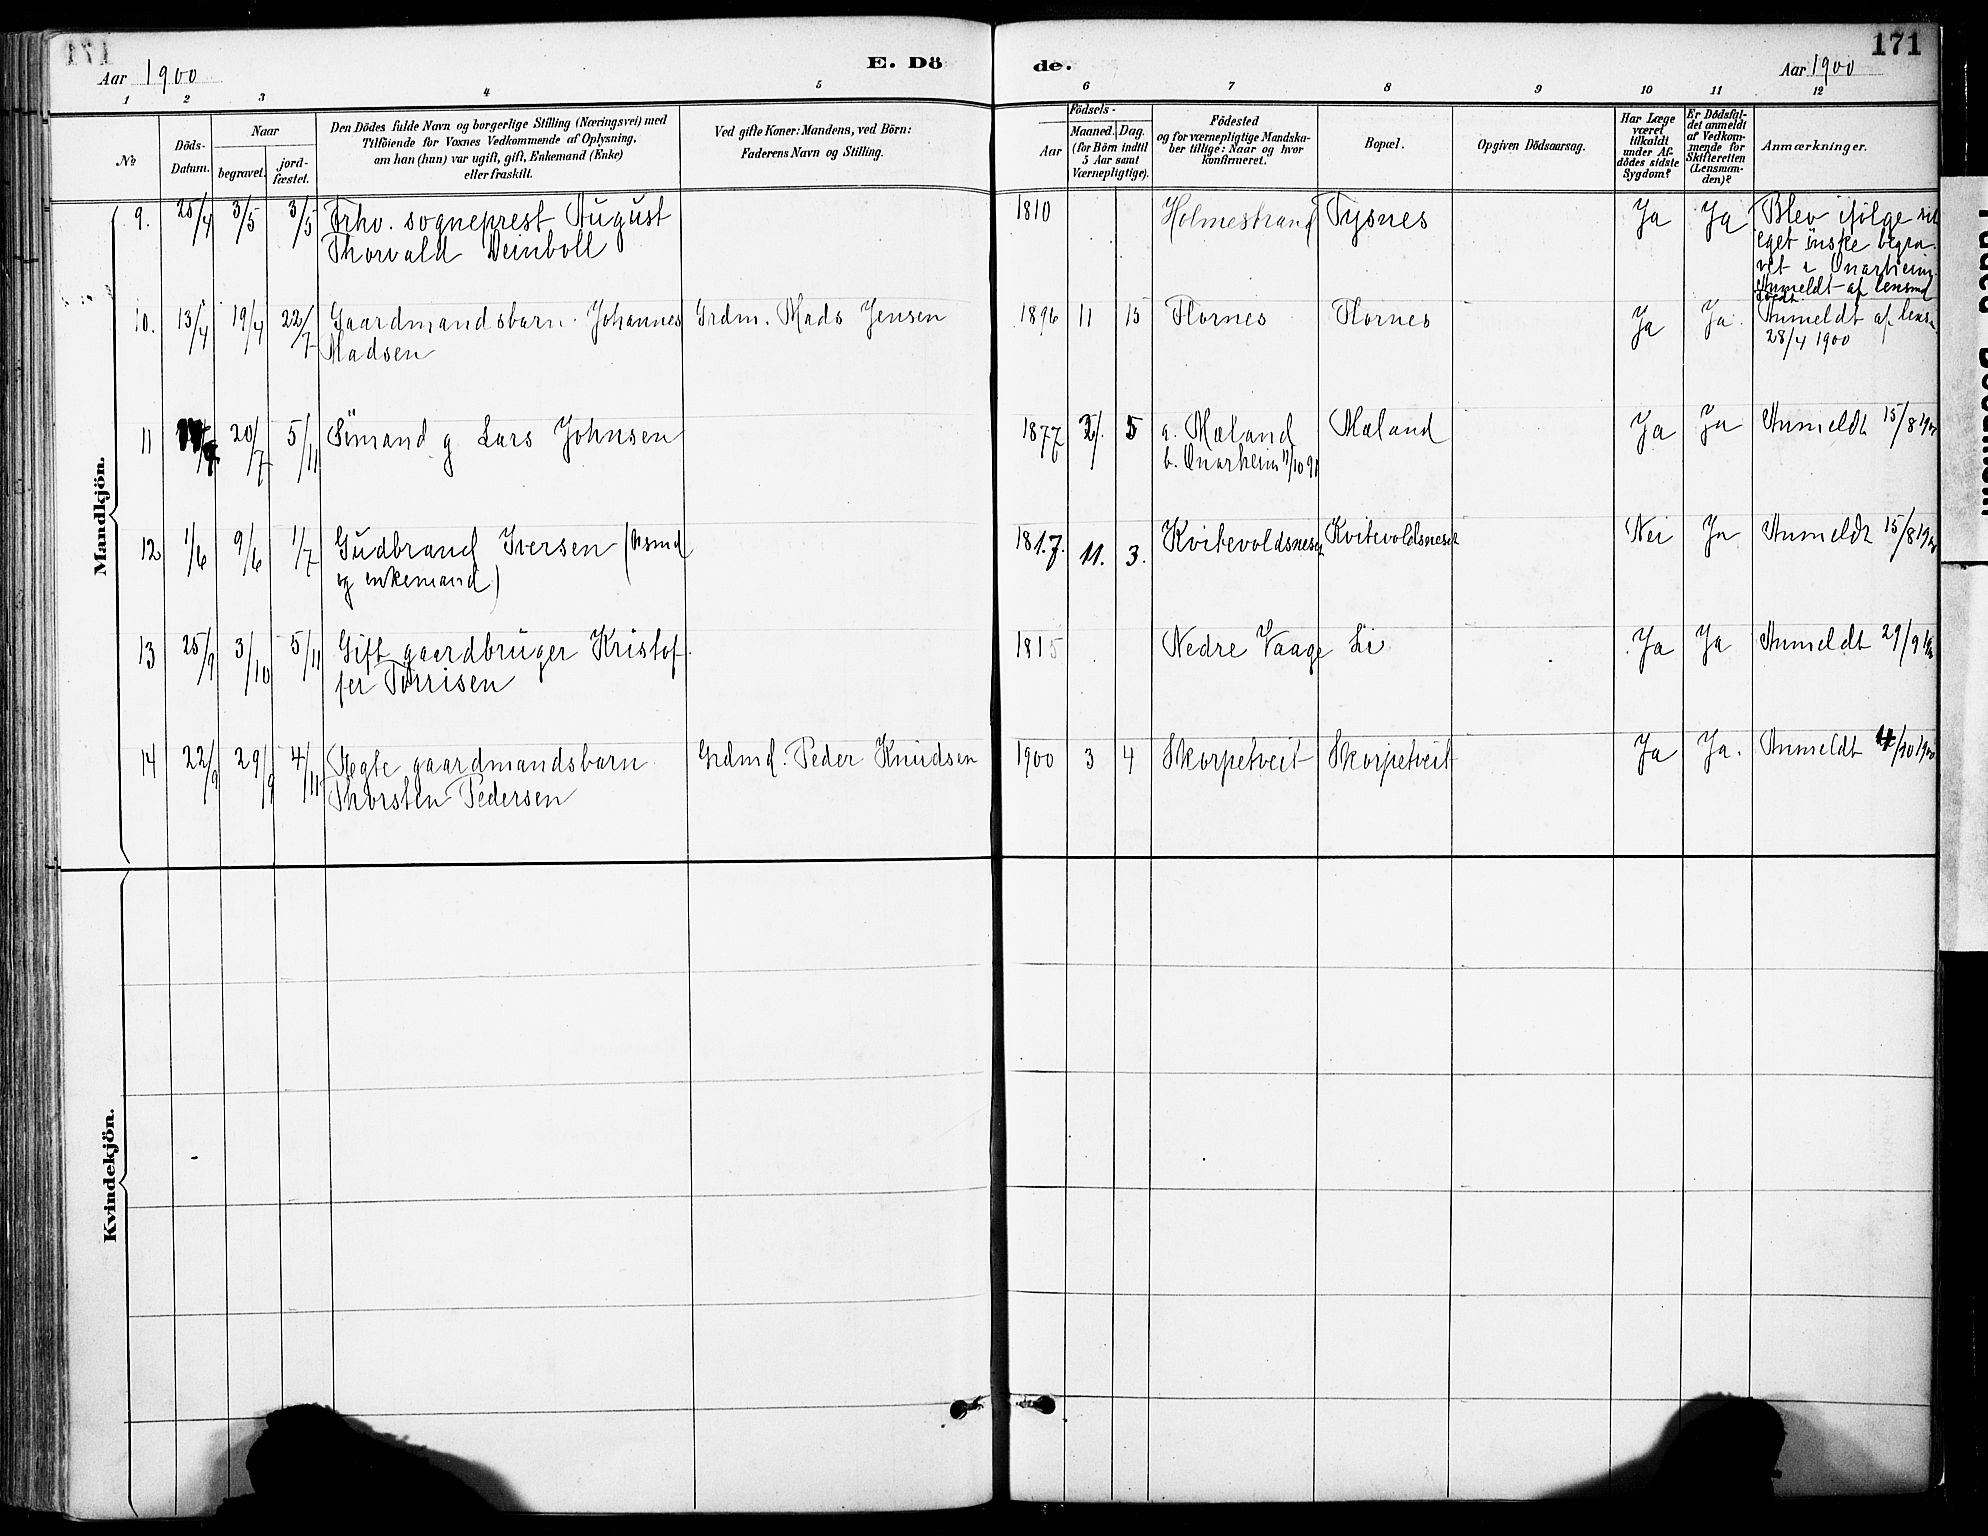 171
Aar 1900
E. Dö
de.
Aar 1900
171
1 2 3 4 5 6 7 8 9 10 11 12
No
Döds-
Datum.
Naar
begravet.
jord-
fæstet.
Den Dödes fulde Navn og borgerlige Stilling (Næringsvei) med
Tilföiende for Voxnes Vedkommende af Oplysning,
am han (hun) var ugift, gift, Enkemand (Enke)
eller fraskilt.
Ved gifte Koner: Mandens, ved Börn:
Faderens Navn og Stilling.
Födsels-
Aar
Maaned. Dag.
(for Börn indtil
5 Aar samt
Værnepligtige).
Födested
og for værnepligtige Mandska-
ber tillige: Naar og hvor
konfirmeret.
Bopæl.
Opgiven Dödsaarsag.
Har Læge
været
tilkaldt
under Af-
dödes sidste
Sygdom?
Er Dödsfal-
det anmeldt
af Vedkom-
mende for
Skifteretten
(Lensman-
den)?
Anmærkninger.
Mandkjön.
9. 25/4 3/5 3/5 Frhv. sogneprest August
Thorvald Deinboll
1810 Holmestrand Tysnes Ja Ja Blev ifölge sit
eget önske begra-
vet i Onarheim.
Anmeldt af lensmd
10. 13/4 19/4 22/7 Gaardmandsbarn Johannes
Madsen
Grdm. Mads Jensen 1896 11 15 Flornes Flornes Ja Ja. Anmeldt af lensm.
28/4 1900
11 20/7 5/11 Sömand g Lars Johnsen 1877 5 a. Mæland
b. Onarheim 11/10 91
Mæland Ja Ja Anmeldt 15/8 1900
12 1/6 9/6 1/7 Gudbrand Iversen (
og enkemand)
1817. 11. 3. Kvitevoldsneset Kvitevoldsneset Nei Ja Anmeldt 15/8 1900
13 25/9 3/10 5/11 Gift gaardbruger Kristof-
fer Torrisen
1815 Nedre Vaage Li Ja Ja Anmeldt 29/9 1900
14 22/9 29/9 4/11 Ægte gaardmandsbarn
Thorsten Pedersen
Grdmd. Peder Knudsen 1900 3 4 Skorpetveit Skorpetveit Ja Ja. Anmeldt 4/10 1900
Kvindekjön.